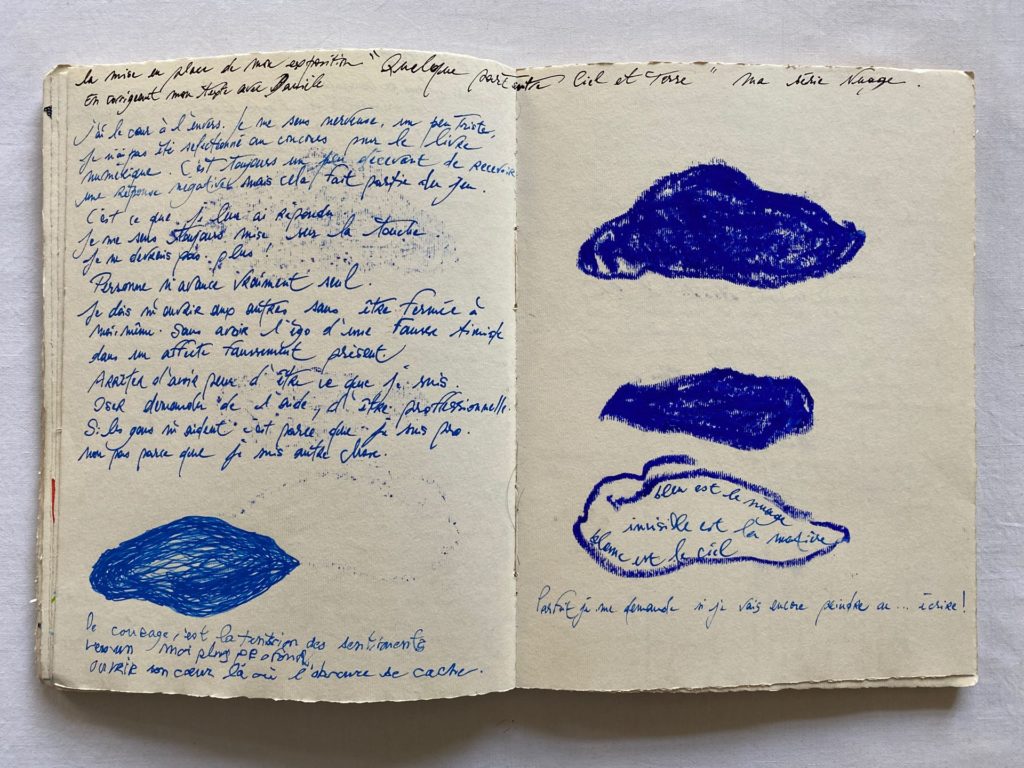 la mise en place de mon exposition "Quelque part entre Ciel et Terre" ma série Nuage.
En corrigeant mon texte avec Danièle
j'ai le cœur à l'envers. Je me sens nerveuse, un peu triste,
je n'ai pas été selectionné au concours pour le livre
numérique. C'est toujours un peu décevant de recevoir
une réponse négative mais cela fait partie du jeu.
C'est ce que je leur ai répondu
je me suis toujours mise sur la touche
je ne devrais pas. plus!
Personne n'avance vraiment seul.
Je dois m'ouvrir aux autres sans être fermée à
moi-même. Sans avoir l'égo d'une fausse timide
dans un affecte faussement présent.
Arrêter d'avoir peur d'être ce que je suis.
Oser demander de l'aide, d'être proffessionnelle.
Si les gens m'aident c'est parce que je suis pro.
non pas parce que je suis autre chose.
le courage, c'est la des sentiments
vers un moi plus profond,
ouvrir son cœur là où l'obscure se cache.
bleu est le nuage
invisible est la matière
blanc est le ciel
Parfois je me demande si je vais encore peindre ou... écrire!